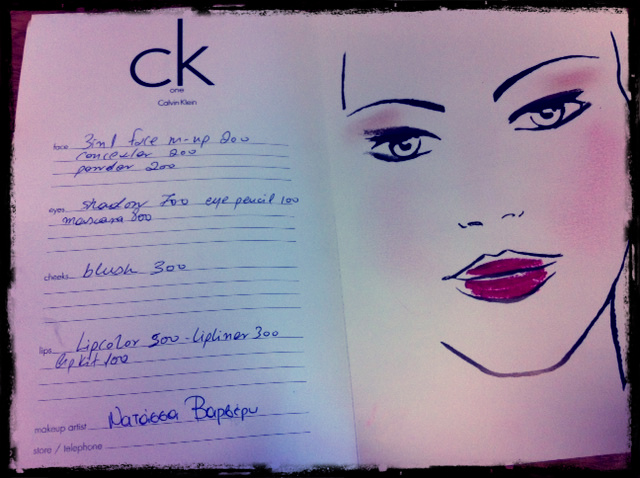 ck
one
Calvin Klein
face 3in1 face m-up 200
concealer 200
powder 200
eyes shadow 700 eye pencil 100
mascara 800
cheeks blush 300
lips Lipcolor 500 - lipliner 300
lip kit 100
makeup artist Νατάσσα Βαρβέρυ
store / telephone